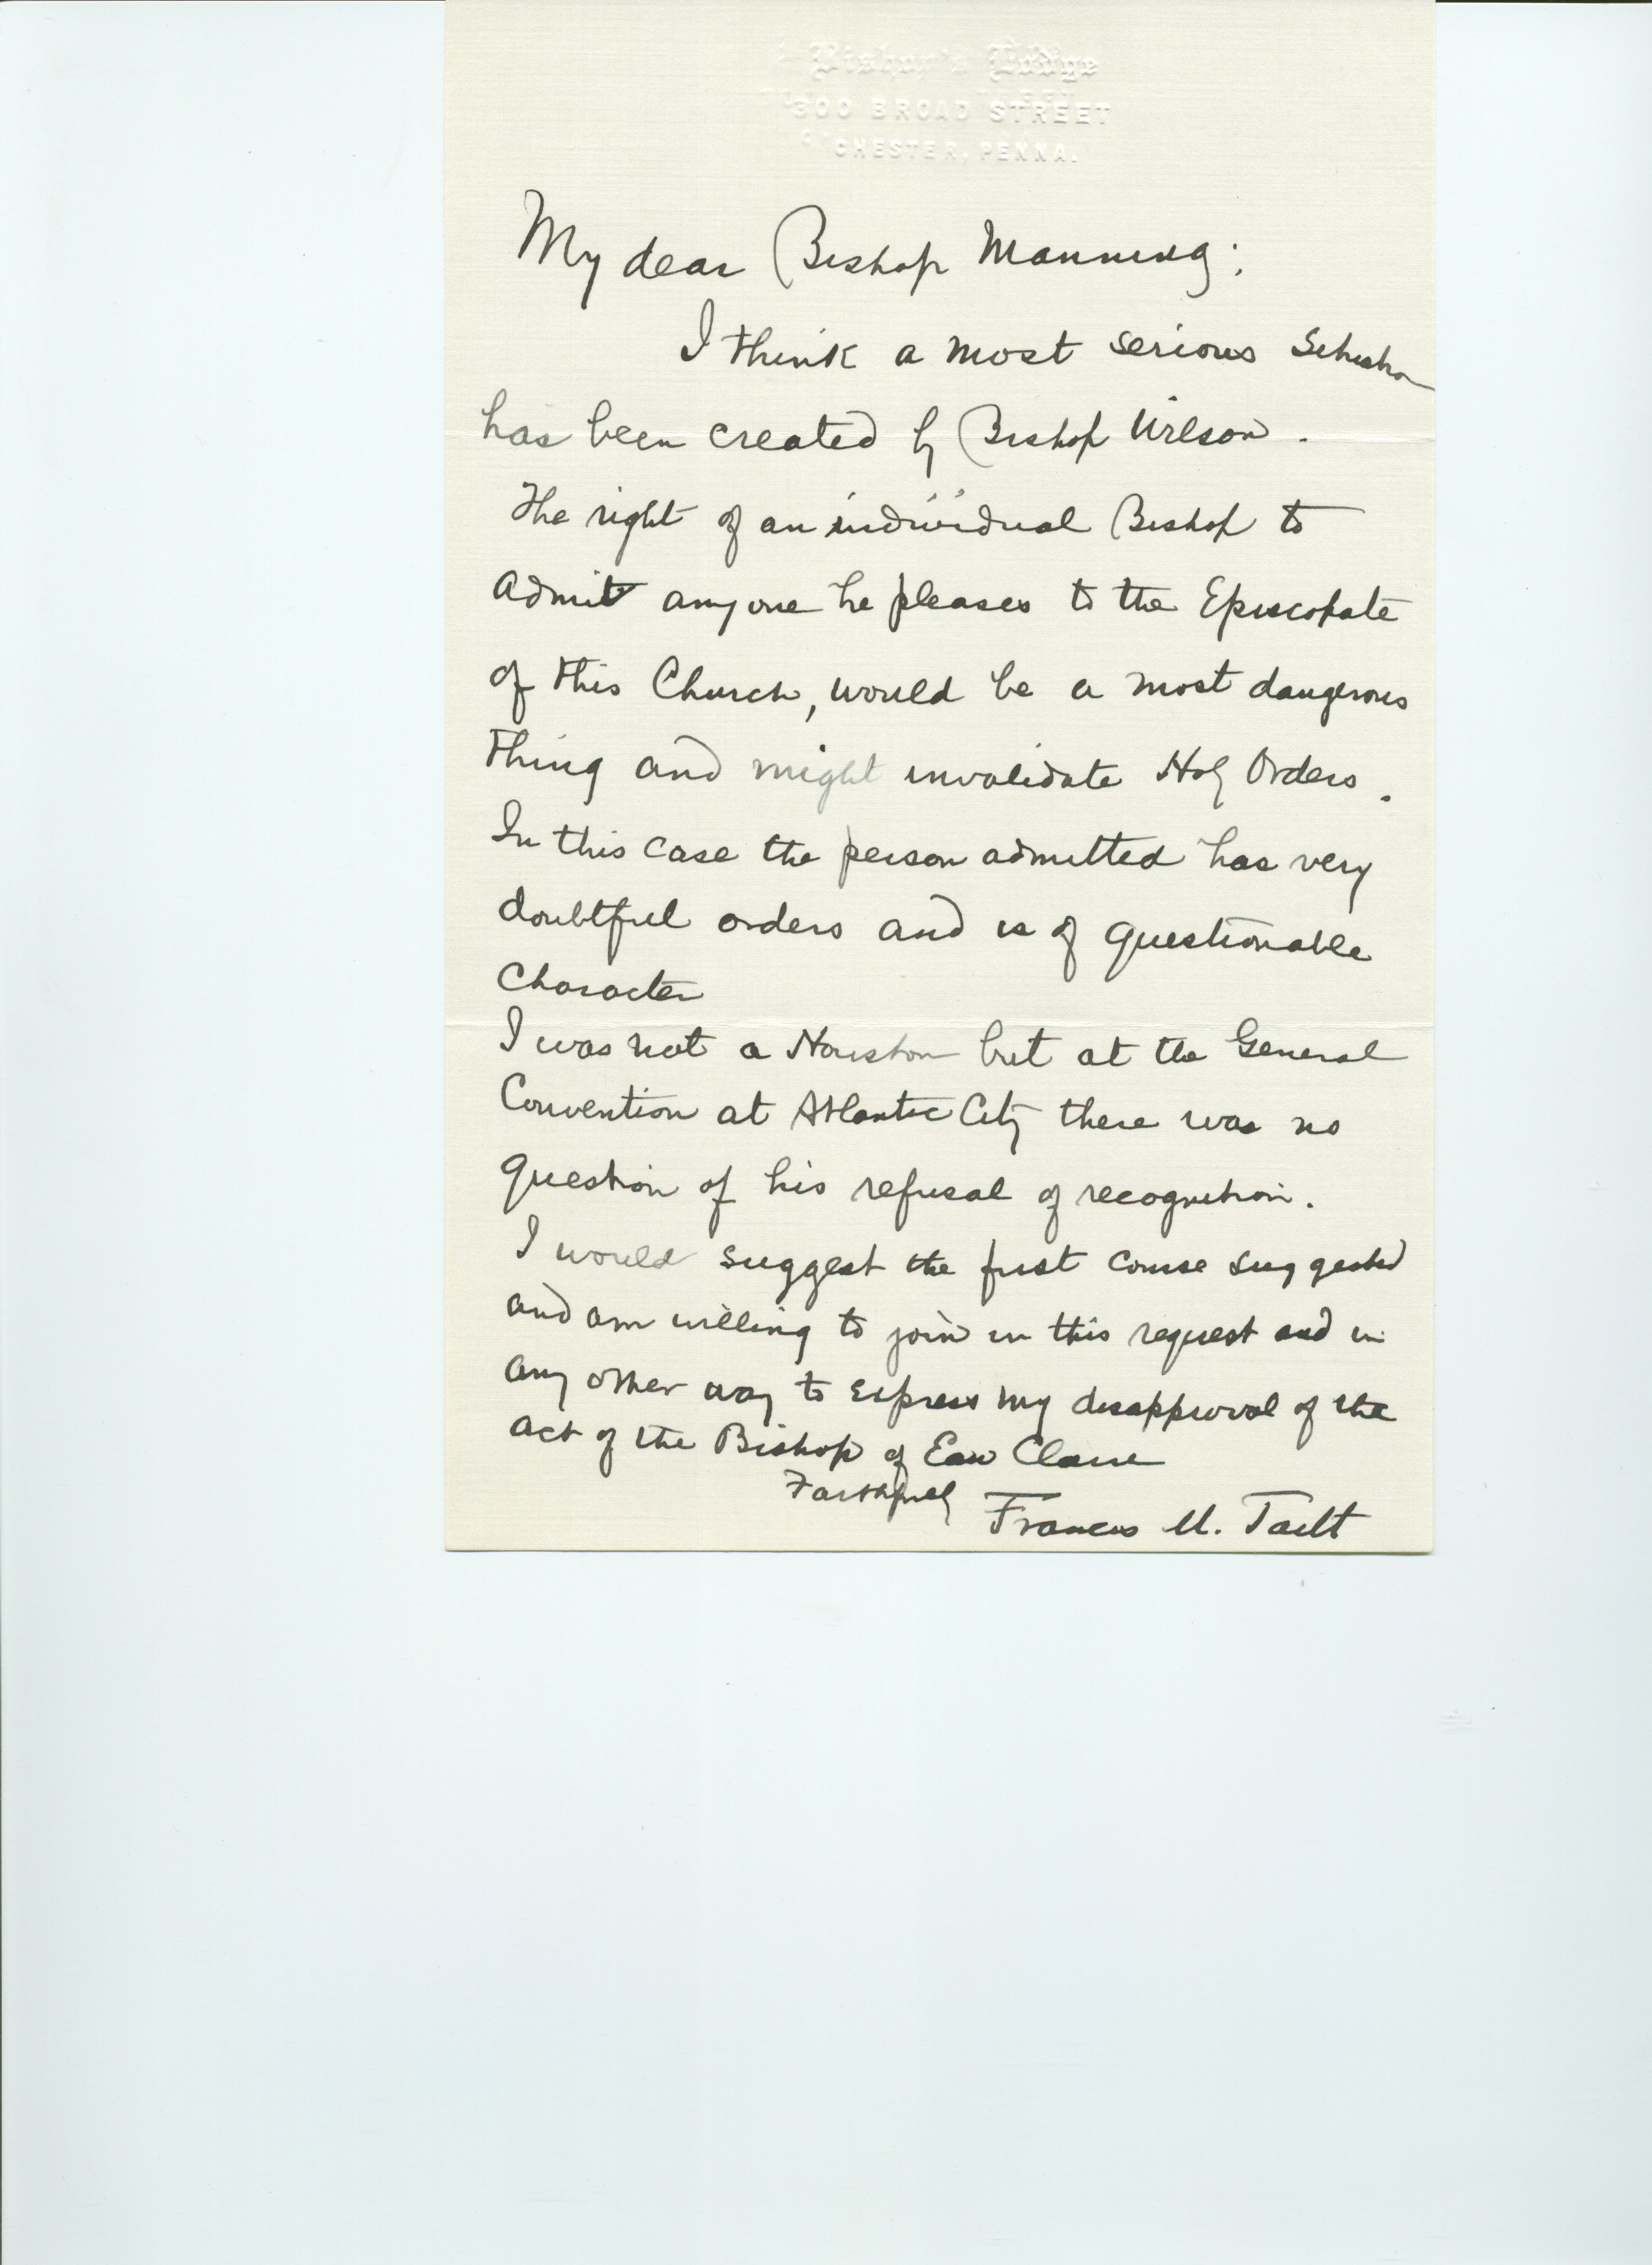 Bishop's Lodge
300 BROAD STREET
CHESTER, PENNA.
My dear Bishop Manning:
I think a most serious situation
has been created by Bishop Wilson.
The right of an individual Bishop to
admit anyone he pleases to the Episcopate
of this Church, would be a most dangerous
thing and might invalidate Holy Orders.
In this case the person admitted has very
doubtful orders and is of questionable
character
I was not a Houston but at the General
Convention at Atlantic City there was no
question of his refusal of recognition.
I would suggest the first course suggested
and am willing to join in this request and in
any other way to express my disapproval of the
act of the Bishop of Eau Claire
Faithfully
Francis M. Taitt